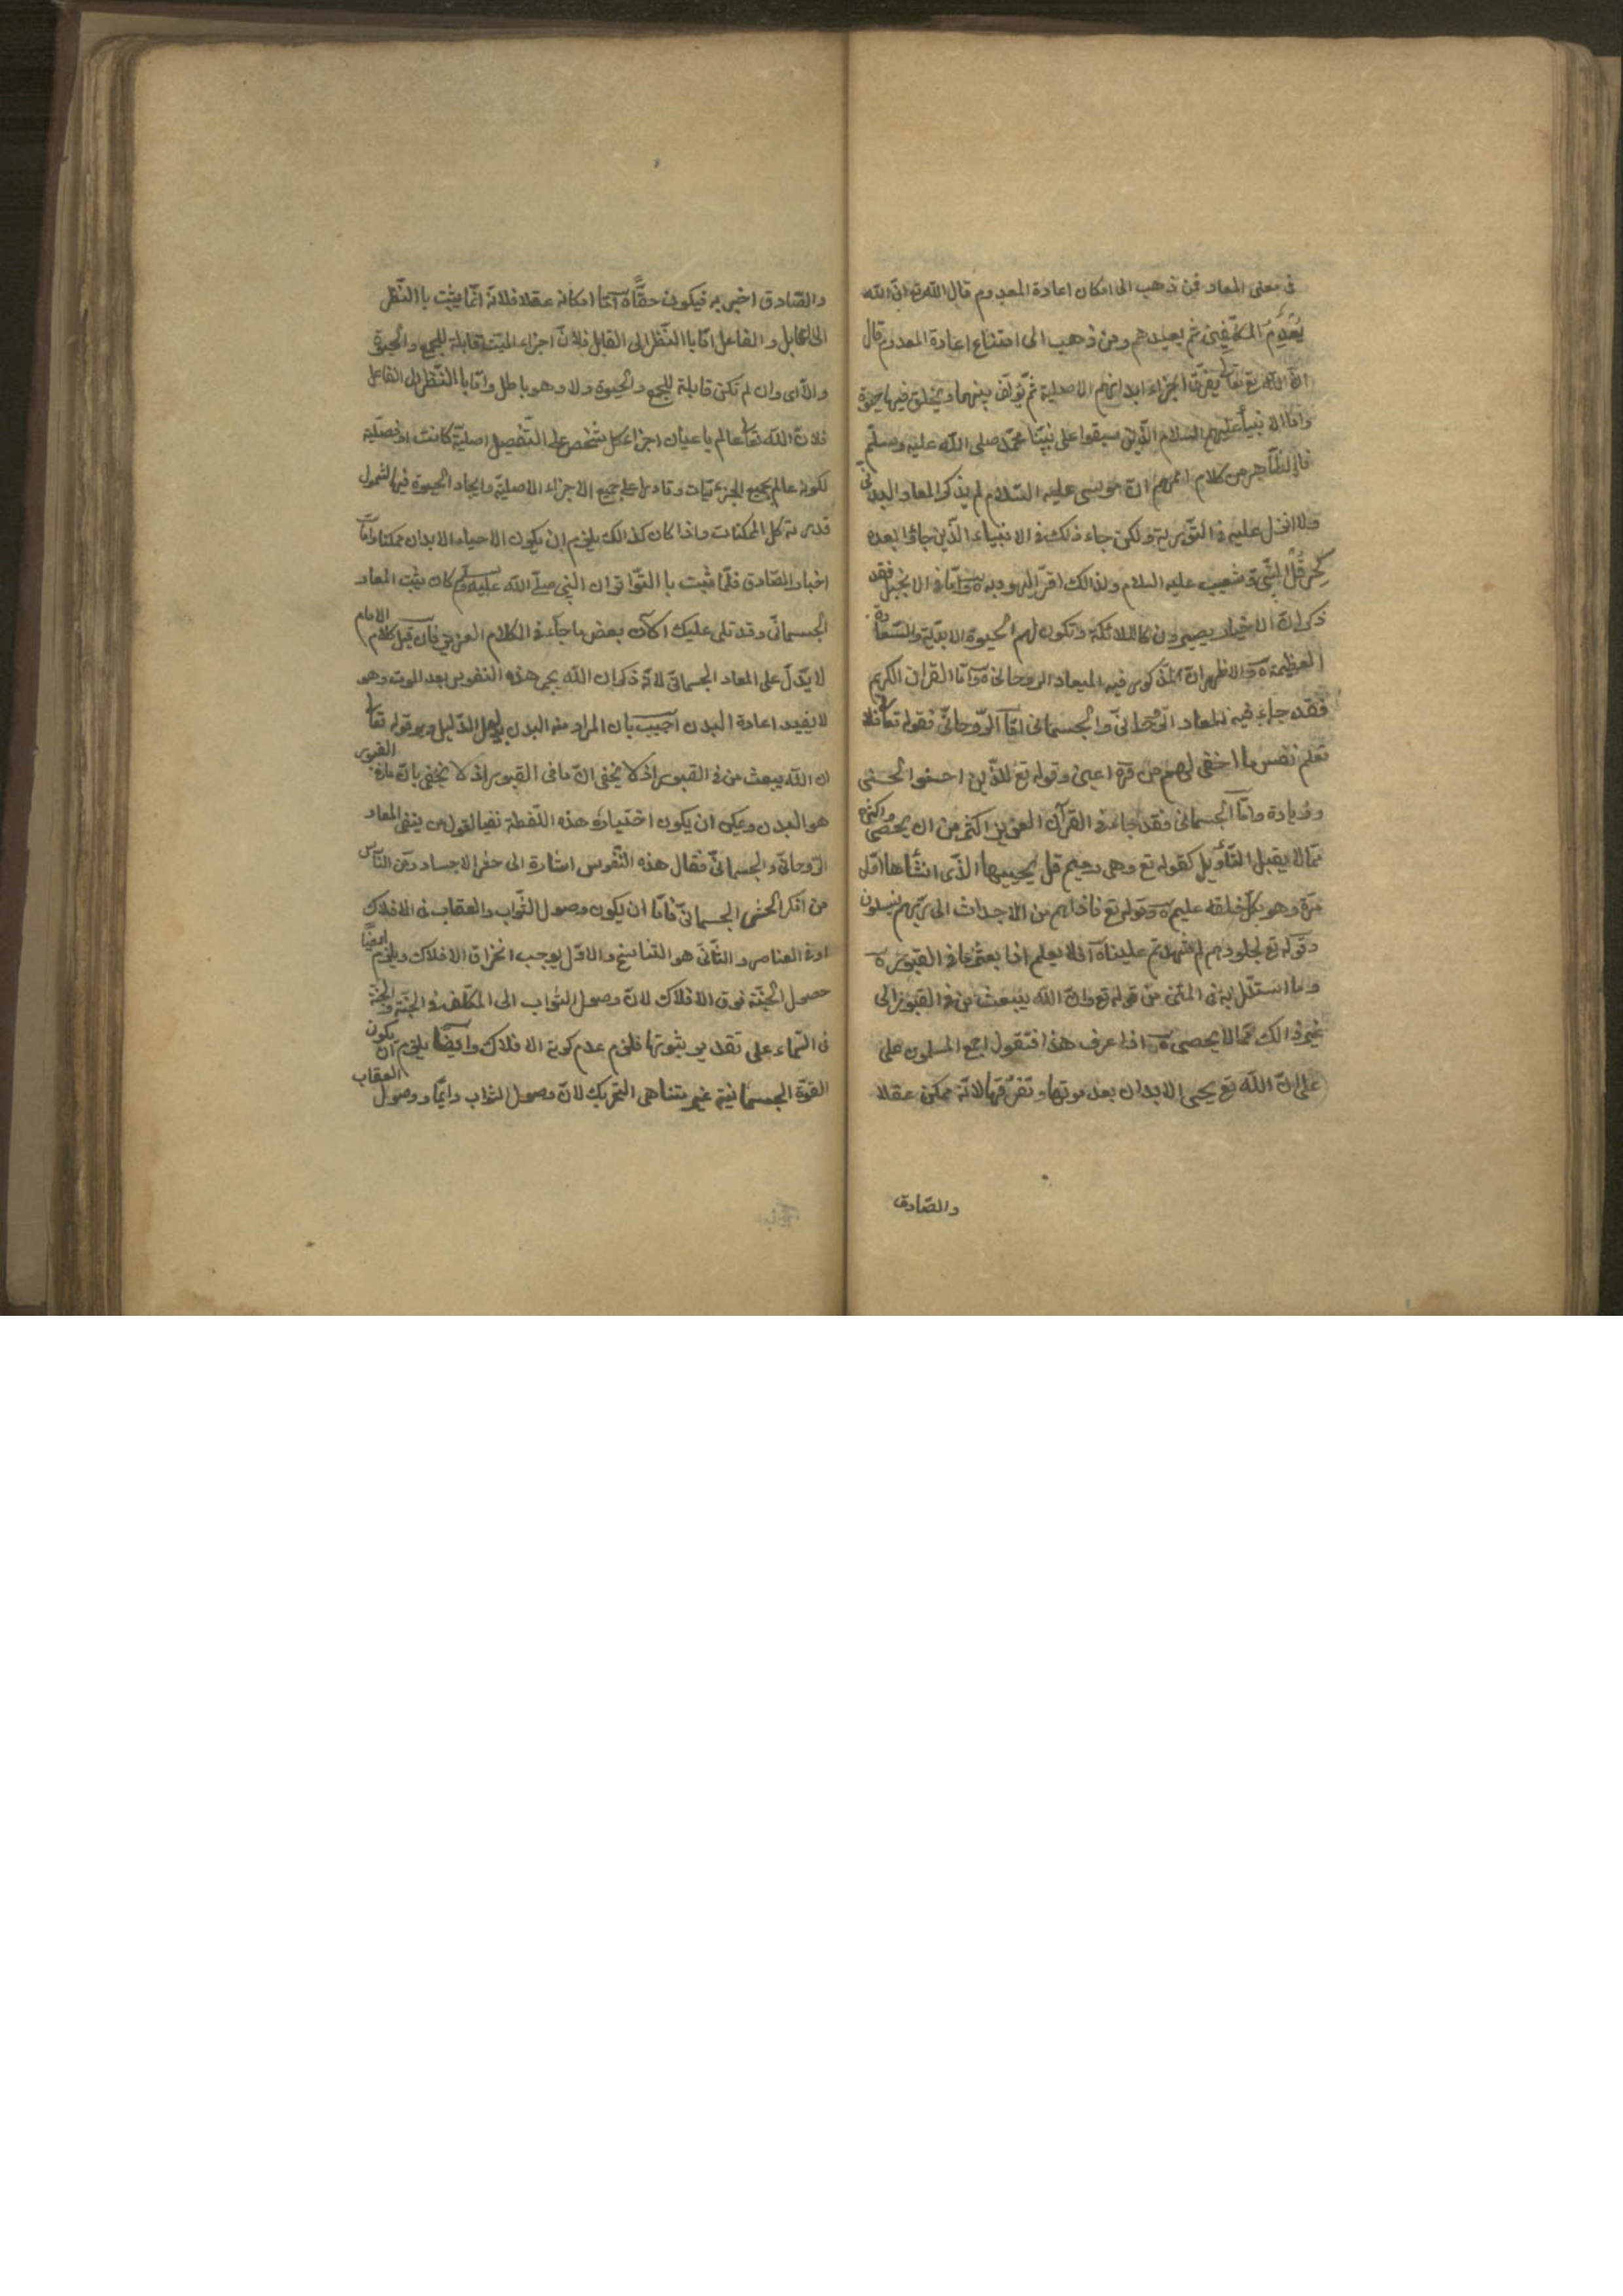 فى معنى المعاد فمن ذهب الى امكان اعادة المعدوم قال الله تع انّ الله
يُعدِمُ المكلّفين ثم يعيدهم ومن ذهب الى امتناع اعادة المعدوم قال
انّ الله تع تعالى يفرّق اجزاء ابدانهم الاصلية ثمّ يؤلّف بينهما ويخلق فيها حيوة
وامّا الانبيآ عليهم السلام الّذين سبقوا على نبيّنا محمّد صلى الله عليه وسلّم
فالظّاهر من كلام اممهم انّ موسى عليه السّلام لم يذكر المعاد البدنى
ولا انزل عليه فى التّورية ولكن جاء ذلك فى الانبياء الّذين جائوا بعده
كحزقل النّبىّ وشعيب عليه السلام ولذالك اقرّ اليهود به وامّا فى الانجيل فقد
ذكر انّ الاخيار يصيرون كالملائكة وتكون لهم الحيوة الابديّة والسّعادة
العظيمة والاظهر انّ المذكور فيه الميعاد الروحانى وامّا القران الكريم
فقد جاء فيه المعاد الرّوحانىّ والجسمانى امّا الرّوحانىّ فقوله تعالى فلا
تعلم نفس ما اخفى لهم من قرّة اعين وقوله تع للّذين احسنوا الحسنى
وزيادة وامّا الجسمانى فقد جاء فى القرآن العزيز اكثر من ان يحصى واكثره
ممّا لا يقبل التّأويل كقوله تع وهى رميم قل يحييها الّذى انشأها اوّل
مرّة وهو بكلّ خلقه عليم وقوله تع فاذا هم من الاجداث الى ربّهم ينسلون
وقوله تع لجلودهم لم شهدتم علينا افلا يعلم اذا بعثر ما فى القبور
وما استدلّ به فى المتن من قوله تع وانّ الله يبعث من فى القبور الى
غير ذالك ممّا لا يحصى اذا عرف هذا فنقول اجمع المسلمون على
على انّ الله تع يحيى الابدان بعد موتها وتفرّقها لانّه ممكن عقلا
والصّادق
والصّادق اخبر به فيكون حقّا امّا امكانه عقلا فلانّه انّما يثبت باالنّظر
الى القابل والفاعل امّا باالنّظر الى القابل فلانّ اجزاء الميّت قابلة للجمع والحيوة
والّا اى وان لم تكن قابلة للجمع والحيوة ولا وهو باطل وامّا باالنّظر الى الفاعل
فلانّ الله تعالى عالم باعيان اجزاء كل شخص على التّفصيل اصليّة كانت او فصليّة
لكونه عالم بجميع الجزئيّات وقادر على جميع الاجزاء الاصليّة وايجاد الحيوة فيها لشمول
قدرته كل الممكنات واذا كان كذالك يلزم ان يكون الاحياء الابدان ممكنا وامّا
اخبار الصّادق فلمّا ثبت باالتّواتر ان النبى صلّى الله عليه وسلم كان يثبت المعاد
الجسمانىّ وقد تلى عليك الآن بعض ما جآء فى الكلام العزيز فان قيل كلام الامام
لا يدّل على المعاد الجسمانىّ لانّه ذكر ان الله يحى هذه النفوس بعد الموت وهو
لا يفيد اعادة البدن اجيب بان المراد منه البدن بدليل الدّليل وهو قوله تعالى
ان الله يبعث من فى القبور اذ لا يخفى انّ ما فى القبور اذ لا يخفى بانّ ما فى القبور
هو البدن ويمكن ان يكون اختياره هذه اللّفظة نفيا لقول من ينفى المعاد
الرّوحانىّ والجسمانىّ فقال هذه النّفوس اشارة الى حشر الاجساد ومن النّاس
من انكر الحشر الجسمانىّ فامّا ان يكون وصول الثّواب والعقاب فى الافلاك
او فى العناصر والثّانى هو التناسخ والاوّل يوجب انخراق الافلاك ويلزم ايضًا
حصول الجنّة فوق الافلاك لانّ وصول الثّواب الى المكلّف فى الجنّة والجنّة
فى السّماء على تقدير ثبوتها فلزم عدم كونه الافلاك وايضًا يلزم ان يكون
القوّة الجسمانيّة غير متناهى التّحريك لانّ وصول الثواب دايمًا ووصول العقاب